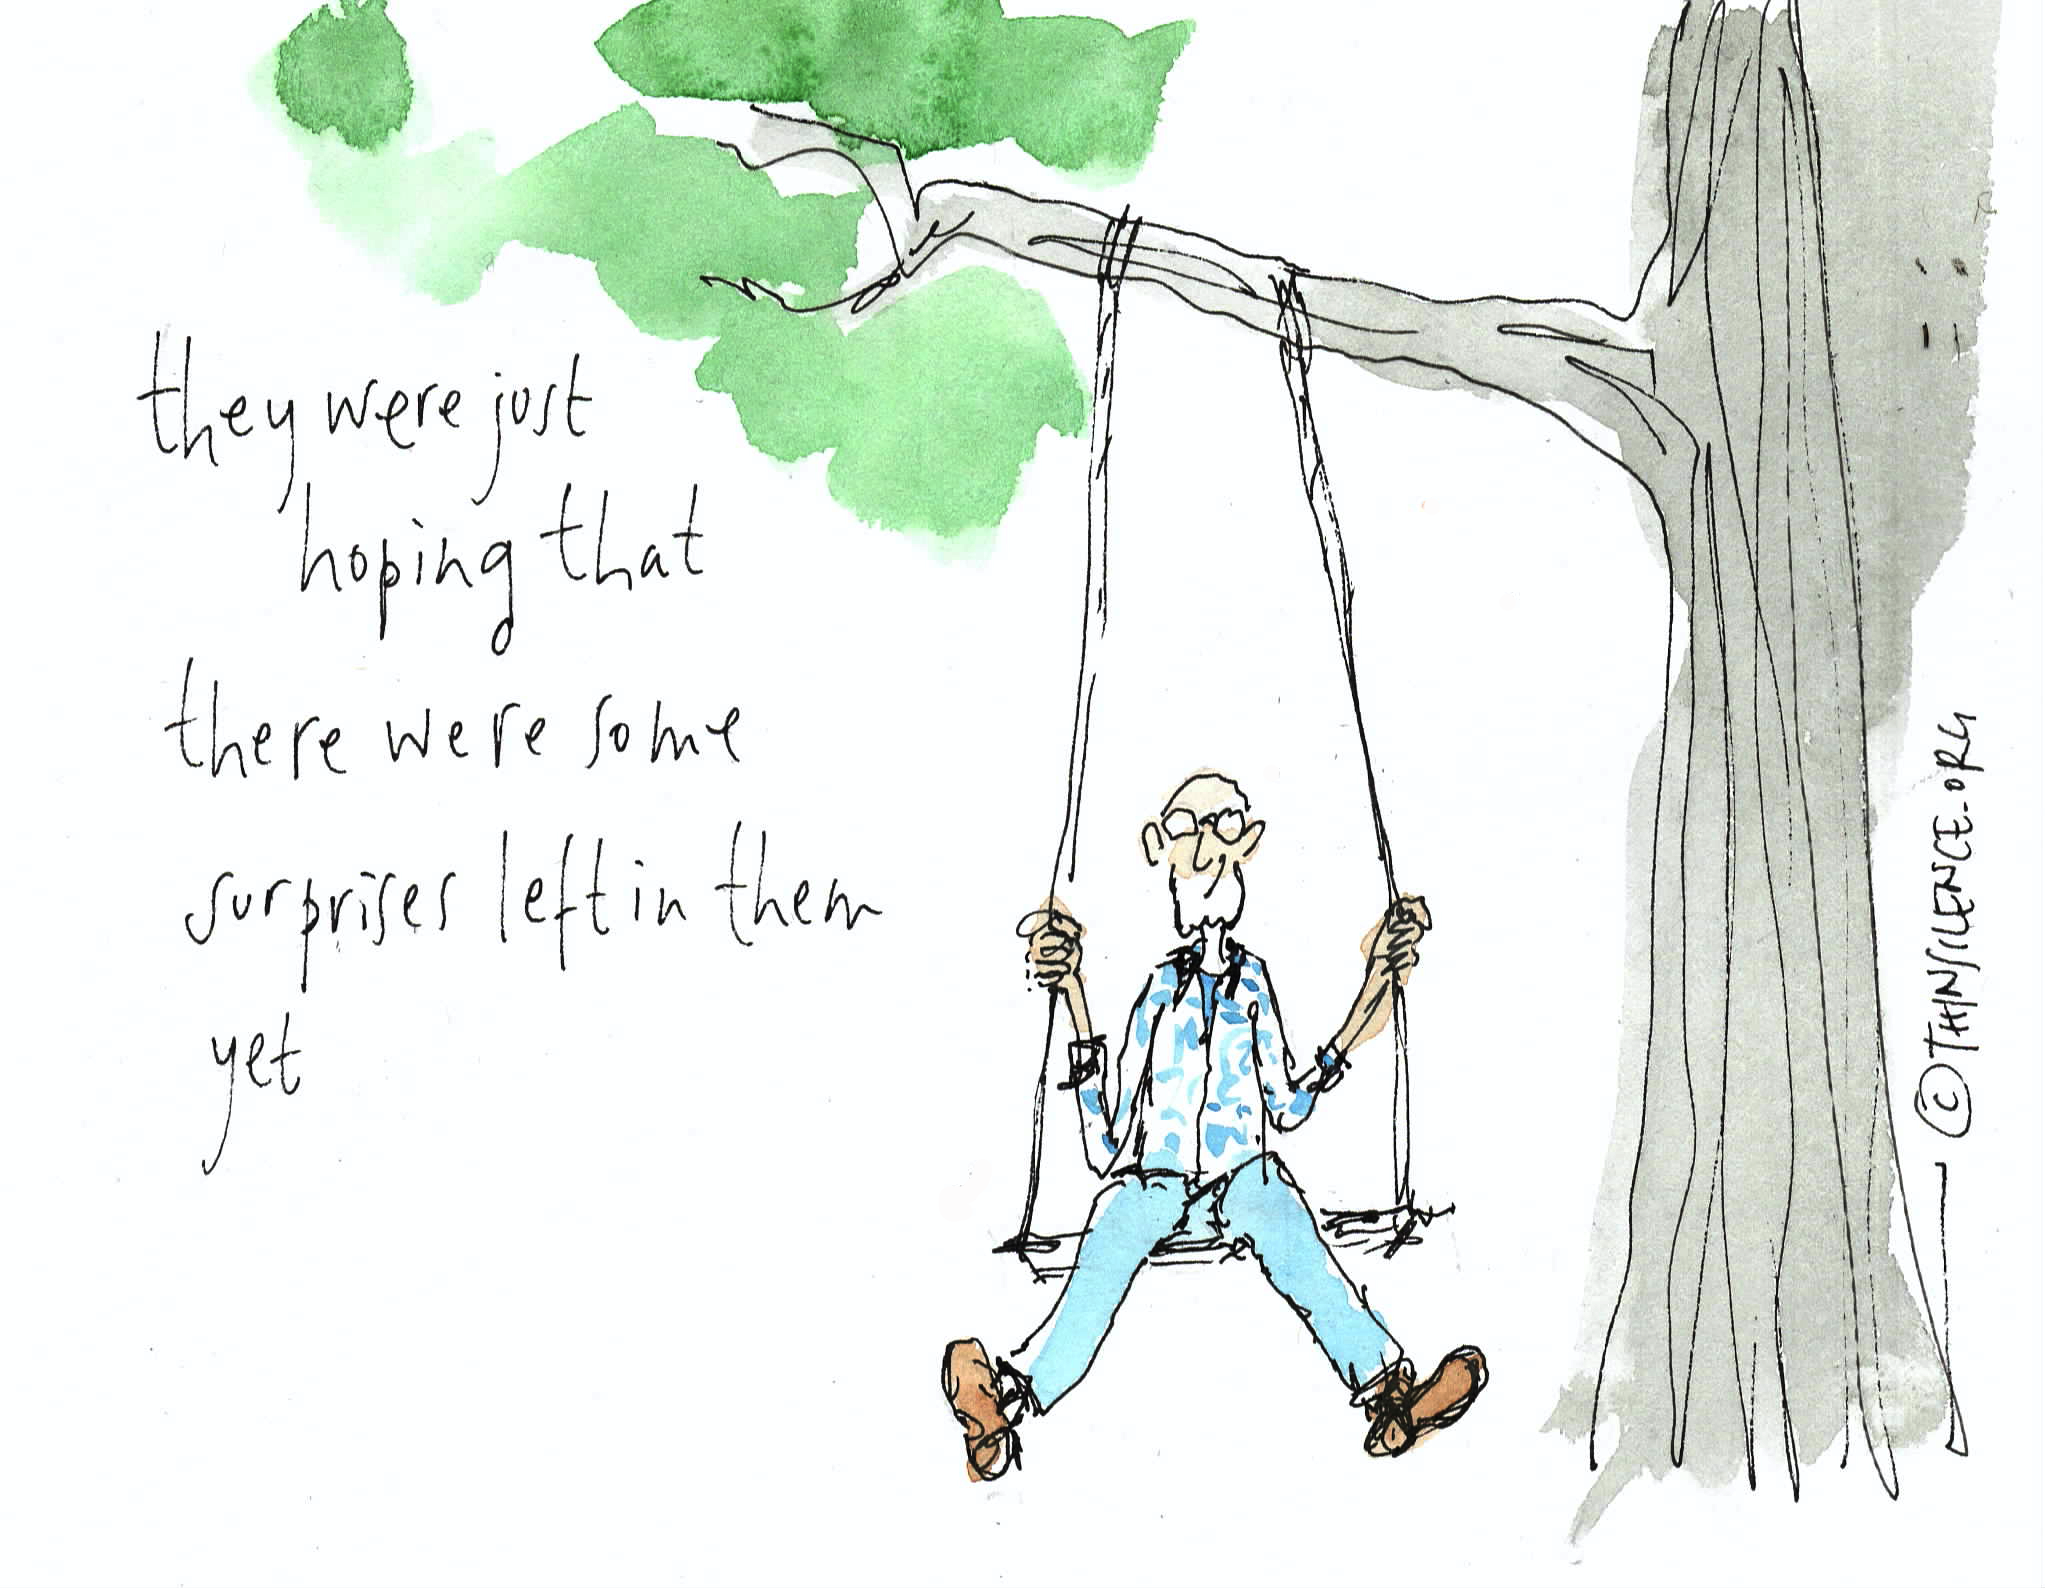 they were just
hoping that
there were some
surprises left in them
yet
© THINSILENCE.ORG